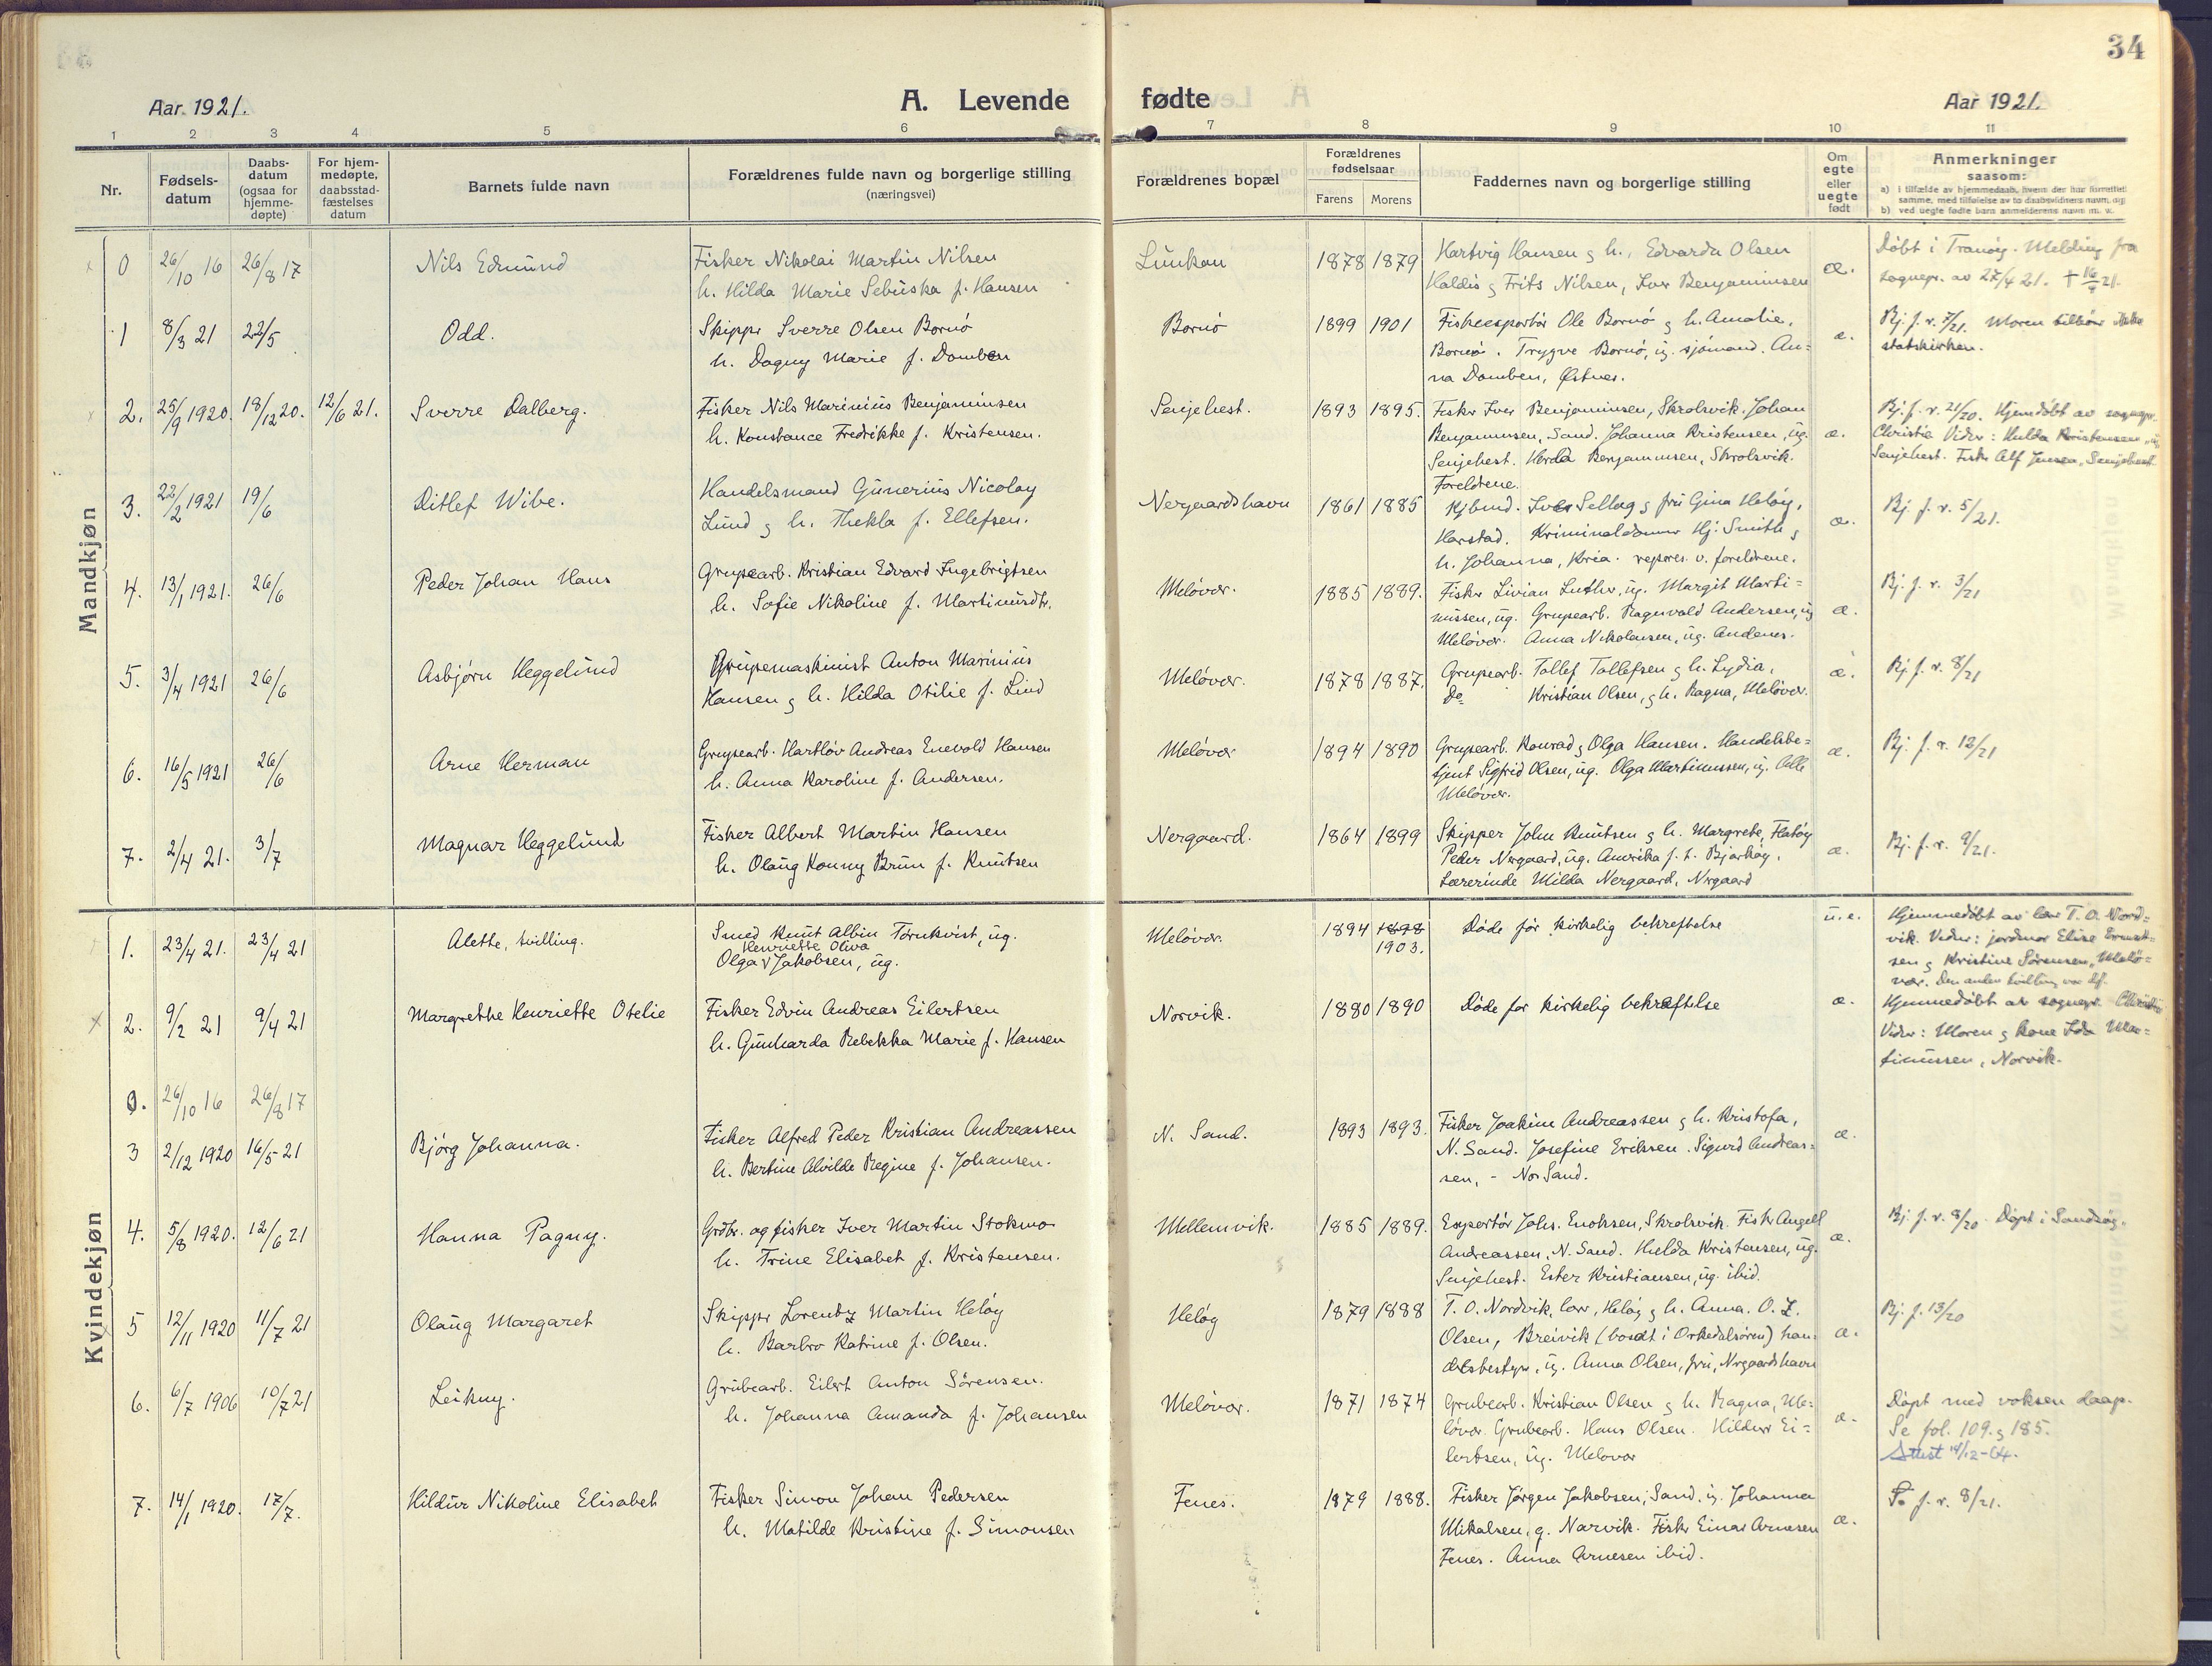 34
Aar 1921.
A. Levende fødte
Aar 1921.
1 2 3 4 5 6 7 8 9 10 11
Nr.
Fødsels-
datum
Daabs-
datum
(ogsaa for
hjemme-
døpte)
For hjem-
medøpte,
daabsstad-
fæstelses
datum
Barnets fulde navn
Forældrenes fulde navn og borgerlige stilling
(næringsvei)
Forældrenes bopæl
Forældrenes
fødselsaar
Farens Morens
Faddernes navn og borgerlige stilling
Om
egte
eller
uegte
født
Anmerkninger
saasom:
a) i tilfælde av hjemmedaab, hvem der har forrettet
samme, med tilføielse av to daabsvidners navn, og
b) ved uegte fødte barn anmelderens navn m. v.
Mandkjøn
0 26/10 16 26/8 17 Nils Edmund
Fisker Nikolai Martin Nilsen
h. Hilda Marie Sebuska f. Hansen
1878 1879
Hartvig Hansen & h., Edvarda Olsen
Haldis & Frits Nilsen, Iver Benjaminsen
æ.
Døbt i Tranøy. Melding fra
sognepr. av 27/4 21.
1 8/3 21 22/5 Odd.
Skippr Sverre Olsen Bornø
h. Dagny Marie f. Domben
Bornø 1899 1901
Fiskeexportør Ole Bornø & h. Amalie,
Bornø. Trygve Bornø, ug. sjømand. An-
na Domben, Østnes.
æ.
Bj. f. r. 7/21. Moren tilhører ikke
statskirken.
2. 25/9 1920. 18/12 20. 12/6 21. Sverre Dalberg.
Fisker Nils Marinius Benjaminsen
h. Konstance Fredrikke f. Kristensen.
Senjehest. 1893 1895.
Fisker Iver Benjaminsen, Skrolsvik. Johan
Benjaminsen, Sand. Johanna Kristensen, ug.
Senjehest. Herda Benjaminsen, Skrolsvik.
Foreldrene.
æ.
Bj. f. r. 21/20. Hjemdøbt av sognepr.
Christie Vidner: Hulda Kristensen, ug.
Senjehest. Fisker Alf Jensen, Senjehest.
3. 22/2 1921 19/6 Ditlef Wibe.
Handelsmand Gunerius Nicolay
Lund & h. Thekla f. Ellefsen.
Nergaardshavn 1861 1885
Kjbmd. Iver Sellæg & fru Gina Heløy,
Harstad. Kriminaldommer Hj. Smith &
h. Johanna, Kria. repres. v. foreldrene.
æ.
Bj. f. r. 5/21.
4. 13/1 1921. 26/6 Peder Johan Hans
Grupearb. Kristian Edvard Ingebrigtsen
h. Sofie Nikoline f. Martinusdtr.
Meløvær. 1885 1889.
Fisker Livian Luther, ug. Margit Marti-
nussen, ug. Grupearb. Ragnvald Andersen, ug
Meløvær. Anna Nikolaisen, ug. Andenes.
æ.
Bj. f. r. 3/21
5. 3/4 1921 26/6 Asbjørn Heggelund
Grupemaskinist Anton Marinius
Hansen & h. Hilda Otilie f. Lind
Meløvær. 1878 1887.
Grupearb. Tollef Tollefsen & h. Lydia,
Do Kristian Olsen, & h. Ragna, Meløvær.
æ.
Bj. f. r. 8/21
6. 16/5 1921 26/6 Arne Herman
Grupearb. Hartløv Andreas Enevold Hansen
h. Anna Karoline f. Andersen.
Meløvær 1894 1890
Grupearb. Konrad & Olga Hansen. Handelsbe-
tjent Sigfrid Olsen, ug. Olga Martinussen, ug. Alle
Meløvær.
æ.
Bj. f. r. 12/21
7. 2/4 21. 3/7 Magnar Heggelund
Fisker Albert Martin Hansen
h. Olaug Konny Brun f. Knutsen
Nergaard. 1864 1899
Skipper John Knutsen & h. Margrete, Flatøy
Peder Nergaard, ug. Amerika f. t. Bjarkøy.
Lærerinde Milda Nergaard, Nergaard
æ.
Bj. f. r. 9/21.
Kvindekjøn
1. 23/4 21. 23/4 21 Alette, tvilling.
Smed Knut Albin Törnkvist, ug.
Henriette Oliva
Olga Jakobsen, ug.
Meløvær. 1894 1898
1903.
Døde før kirkelig bekreftelse
u.e.
Hjemmedøbt av lær T. O. Nord-
vik. Vidner: jordmor Elise
sen & Kristine Sørensen, Melø-
vær. Den anden tvilling var df.
2. 9/2 21 9/4 21 Margrethe Henriette Otelie
Fisker Edvin Andreas Eilertsen
h. Gunharda Rebekka Marie f. Hansen
Norvik. 1880 1890
Døde før kirkelig bekræftelse
æ.
Hjemmedøbt av sognepr. Christie
Vidner: Moren & kone Ida Mar-
tinussen, Norvik.
0. 26/10 16 26/8 17
3 2/12 1920 16/5 21 Bjørg Johanna.
Fisker Alfred Peder Kristian Andreassen
h. Bertine Alvilde Regine f. Johansen.
N. Sand. 1893 1893.
Fisker Joakim Andreassen & h. Kristofa,
N. Sand. Josefine Eriksen. Sigurd Andreas-
sen, - Nor Sand.
æ.
4. 5/8 1920. 12/6 21 Hanna Pagny.
Grdbr. og fisker Iver Martin Stokmo
h. Trine Elisabet f. Kristensen.
Mellemvik. 1885 1889.
Exportør Johs. Enoksen, Skrolsvik. Fisker Angell
Andreassen, N. Sand. Hulda Kristensen, ug.
Senjehest. Ester Kristiansen, ug. ibid.
æ.
Bj. f. r. 8/20 Døpt i Sandsøy.
5 12/11 1920 11/7 21 Olaug Margaret
Skippr Lorentz Martin Heløy
h. Barbro Katrine f. Olsen.
Heløy 1879 1888
T. O. Nordvik, lær, Heløy & h. Anna. O. Z.
Olsen, Breivik (bosat i Orkedalsøren) han-
delsbestyr, ug. Anna Olsen, fru, Nergaardshavn
æ.
Bj. f. 13/20
6. 6/7 1906 10/7 21 Leikny.
Grubearb. Eilert Anton Sørensen.
h. Johanna Amanda f. Johansen
Meløvær. 1871 1874
Grubearb. Kristian Olsen & h. Ragna, Me-
løvær. Grubearb. Hans Olsen. Hildur Ei-
lertsen, ug. Meløvær
æ.
Døpt med voksen daap.
Se fol. 109. & 185.
Attest 14/12-64.
7. 14/1 1920. 17/7. Hildur Nikoline Elisabeth
Fisker Simon Johan Pedersen
h. Matilde Kristine f. Simonsen
Fenes. 1879 1888.
Fisker Jørgen Jakobsen, Sand. ug. Johanna
Mikalsen, g. Narvik. Fisker Einar Arnesen
Fenes. Anna Arnesen ibid.
æ.
f. r. 8/21.